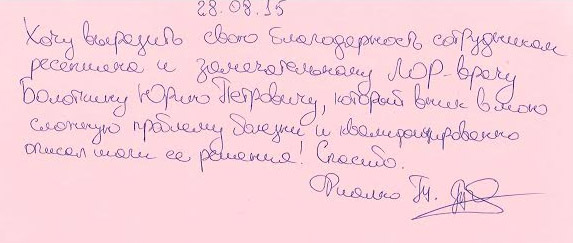 28.08.15
Хочу выразить свою благодарность сотрудникам
ресепшена и замечательному ЛОР-врачу
Болоткину Юрию Петровичу, который вник в мою
сложную проблему болезни и квалифицированно
описал шаги её решения! Спасибо.
Фиалко